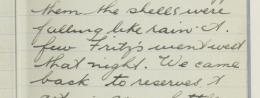 them the shells were
falling like rain. A
few Fritz's went west
that night. We came
back to reserves &